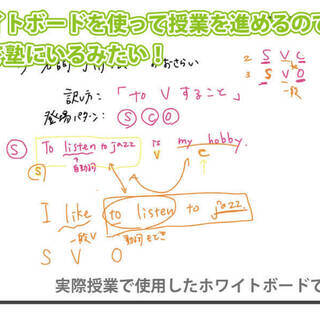 イトボードを使って授業を進めるので
塾にいるみたい！
2 S V C
3 S V O
のおさらい
訳し方：「to V すること」
登場パターン： S C O
S To listen to jazz is my hobby.
S 自動詞 V C
I like to listen to jazz.
一般V 動詞もどき
S V O
実際授業で使用したホワイトボードで